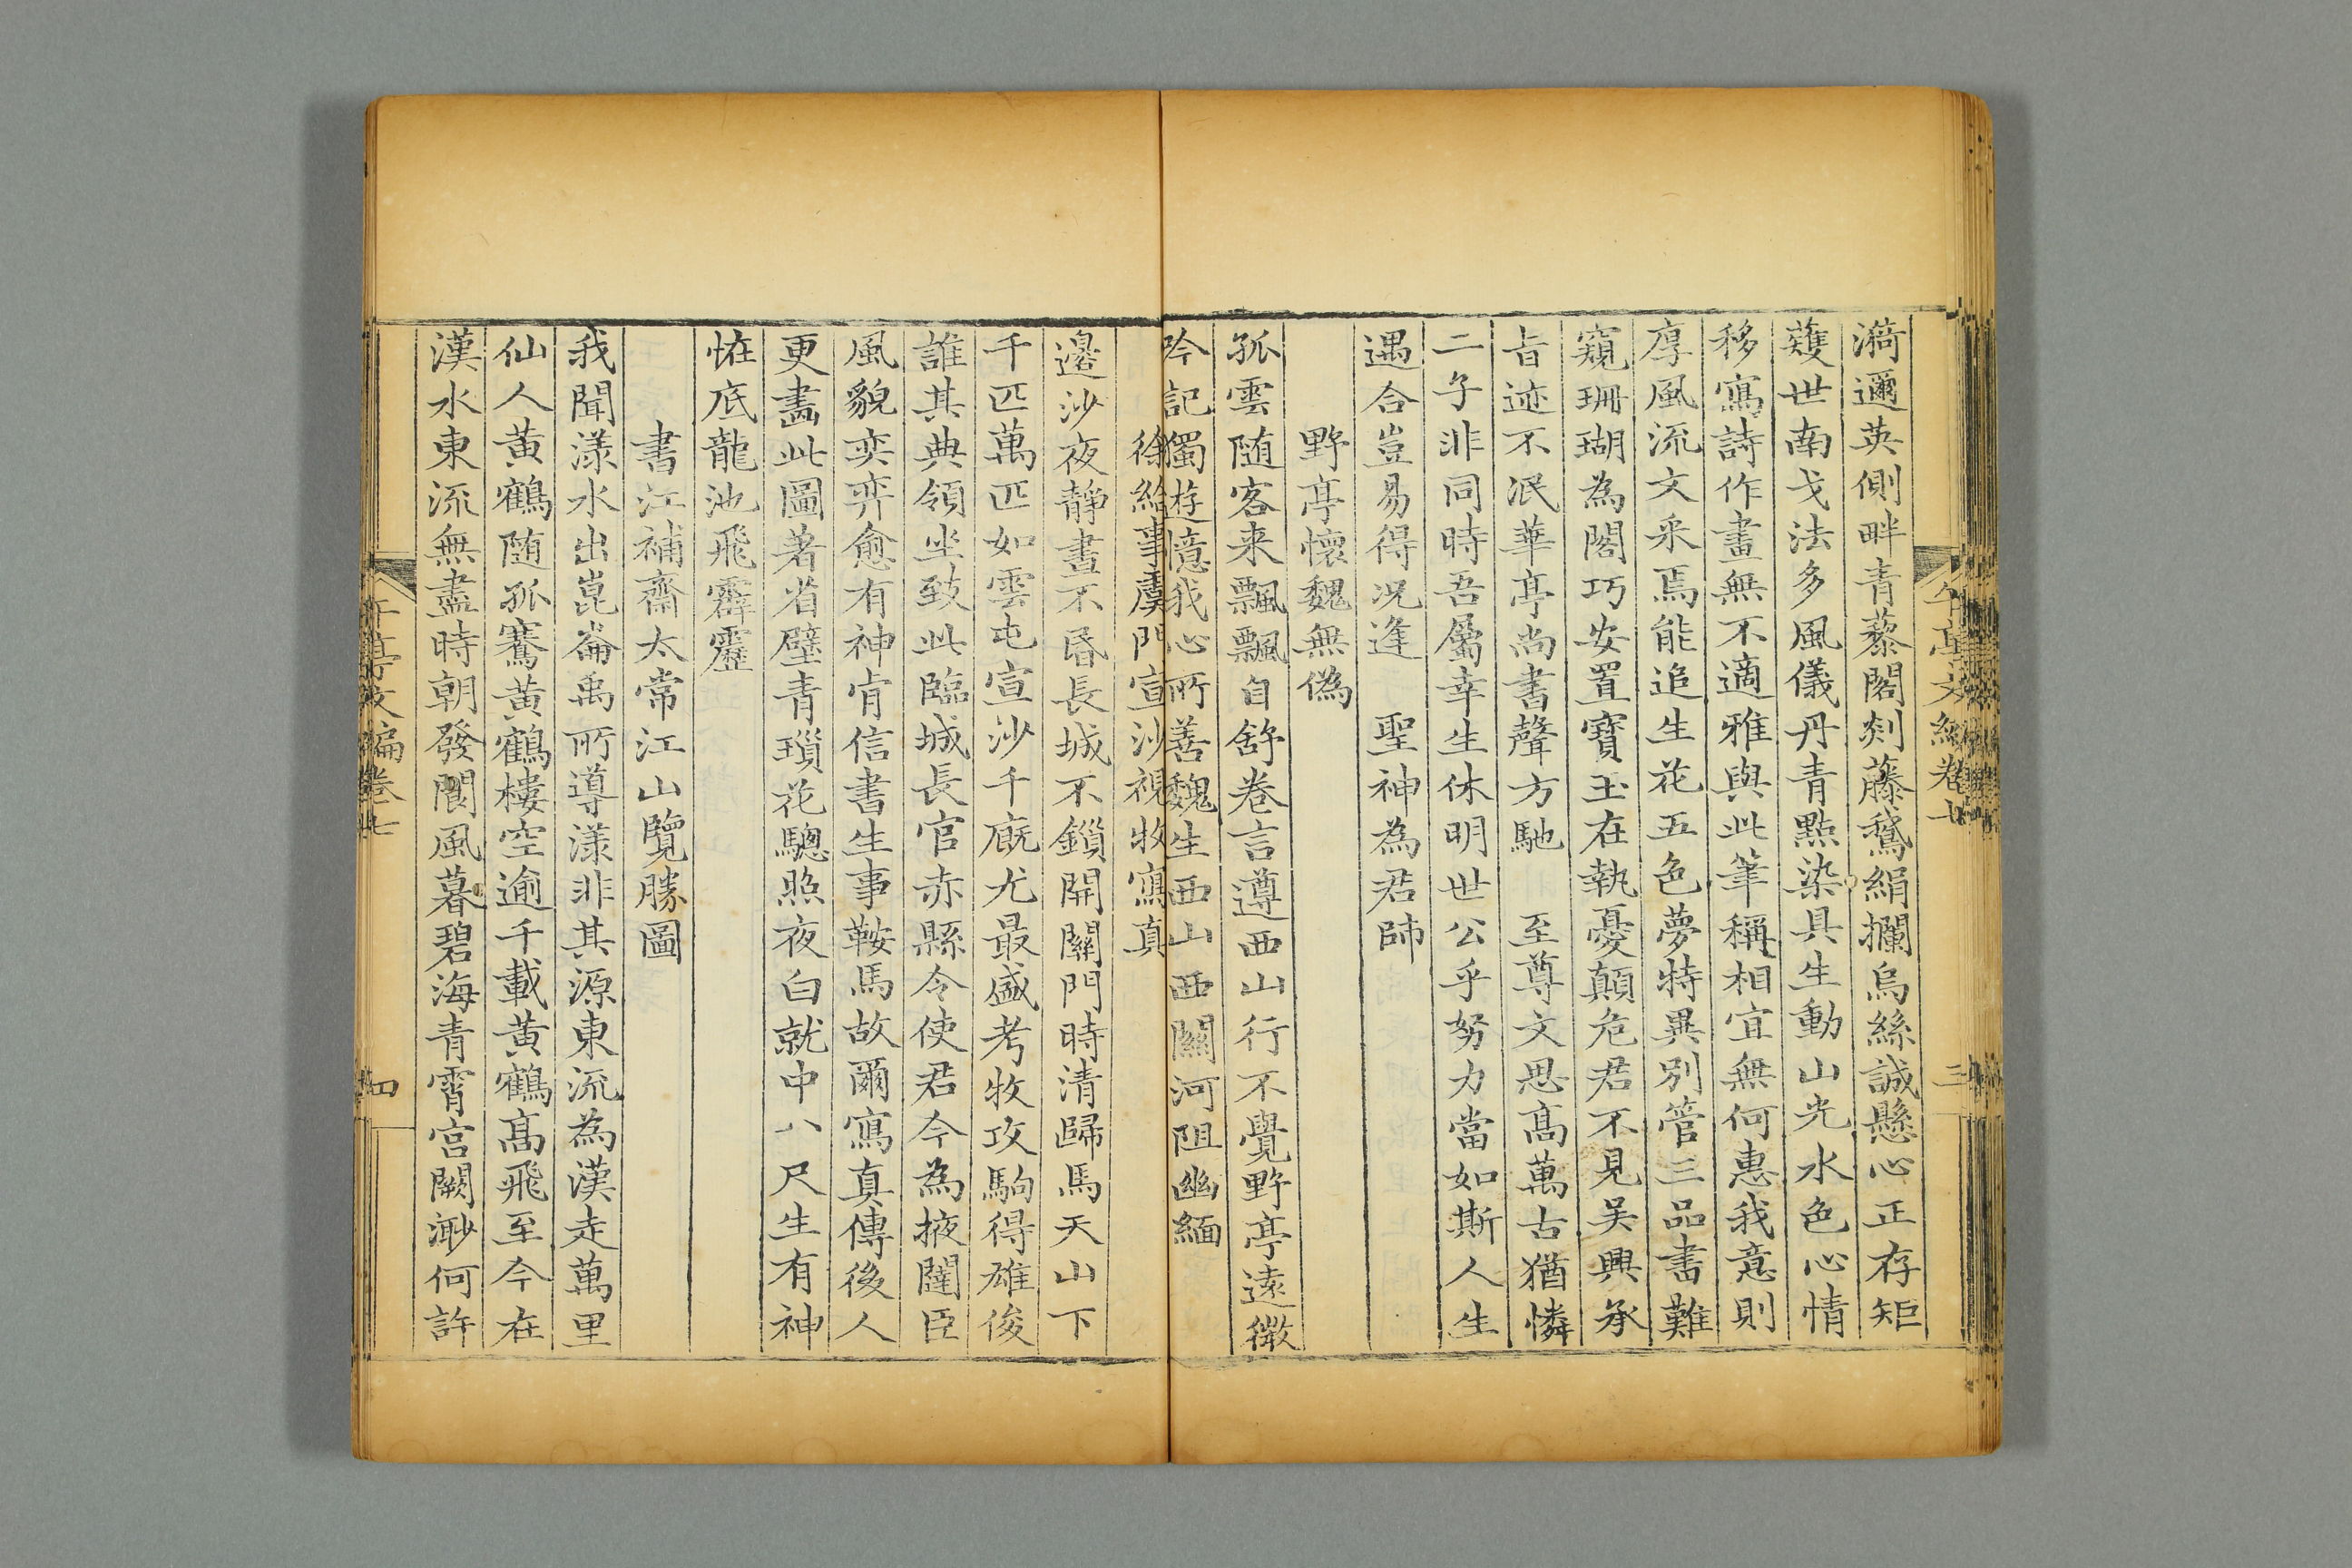 午亭文編卷七
三
漪邇英側畔青藜閣剡藤鵞絹攔烏絲誠懸心正存矩
蒦世南戈法多風儀丹青點染具生動山光水色心情
移寫詩作畫無不適雅與此筆稱相宜無何惠我意則
厚風流文采焉能追生花五色夢特異別管三品書難
窺珊瑚為閣巧安置寶玉在執憂顛危君不見吳興承
旨迹不泯華亭尚書聲方馳 至尊文思高萬古猶憐
二子非同時吾屬幸生休明世公乎努力當如斯人生
遇合豈易得况逢 聖神為君師
野亭懷魏無偽
孤雲随客来飄飄自舒卷言遵西山行不覺野亭遠微
吟記獨遊憶我心所善魏生西山西關河阻幽緬
徐給事虞門宣沙視牧寫真
邊沙夜靜晝不昏長城不鎖開關門時清歸馬天山下
千匹萬匹如雲屯宣沙千廐尤最盛考牧攻駒得雄俊
誰其典領坐致此臨城長官赤縣令使君今為掖闥臣
風貌奕弈愈有神肯信書生事鞍馬故爾寫真傳後人
更畵此圖著省壁青瑣花驄照夜白就中八尺生有神
恠底龍池飛霹靂
書江補齋太常江山覽勝圖
我聞漾水出崑崙禹所導漾非其源東流為漢走萬里
仙人黃鶴随孤騫黃鶴樓空逾千載黃鶴高飛至今在
漢水東流無盡時朝發閬風暮碧海青霄宫闕渺何許
午亭文編卷七
四